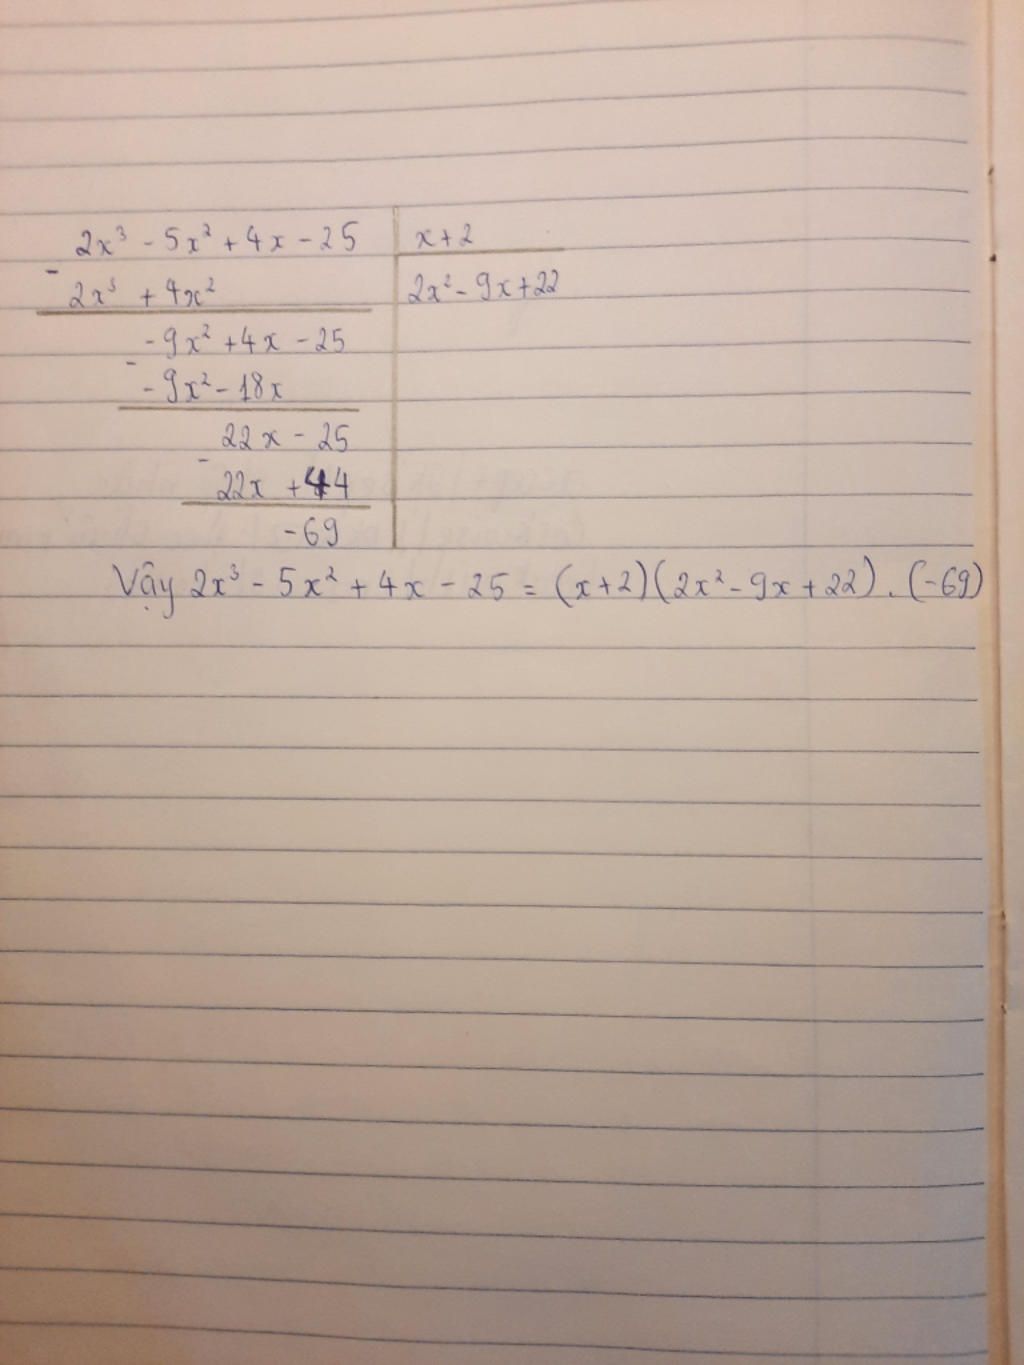 2x³ - 5x² + 4x - 25 | x + 2
- 2x³ + 4x² | 2x² - 9x + 22
- 9x² + 4x - 25
- - 9x² - 18x
22x - 25
- 22x + 44
- 69
Vậy 2x³ - 5x² + 4x - 25 = (x+2)(2x² - 9x + 22) . (-69)